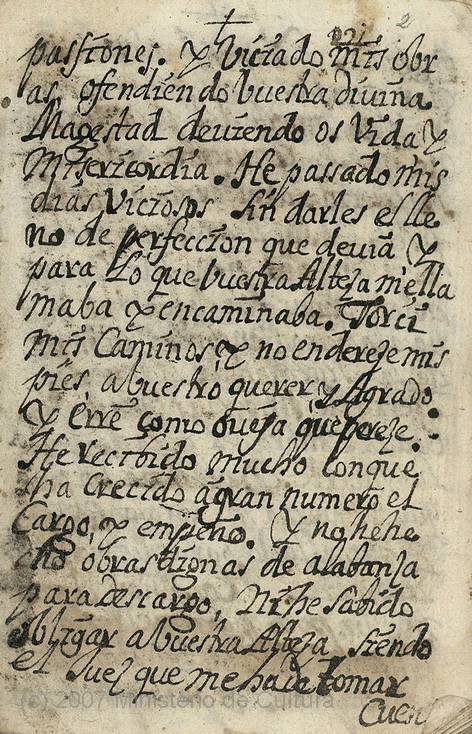 2
passiones. Y Viciado mis obr
as, ofendiendo buestra divina
Magestad deviendo os Vida Y
Misericordia. He passado mis
dias Viciosos sin darles el lle
no de perfeccion que devia Y
para Lo que buestra Alteza me lla
maba Y encaminaba. Torci
mis Caminos Y no endereze mis
pies a buestro querer y Agrado.
Y erre como oveja que pereze.
He recibido mucho con que
ha crecido a gran numero el
Cargo, Y empeño. Y no he he
cho obras dignas de alabanza
para descargo, Ni he sabido
obligar a buestra Alteza siendo
el Juez que me ha de tomar
Cuen
(c) 2007 Ministerio de Cultura